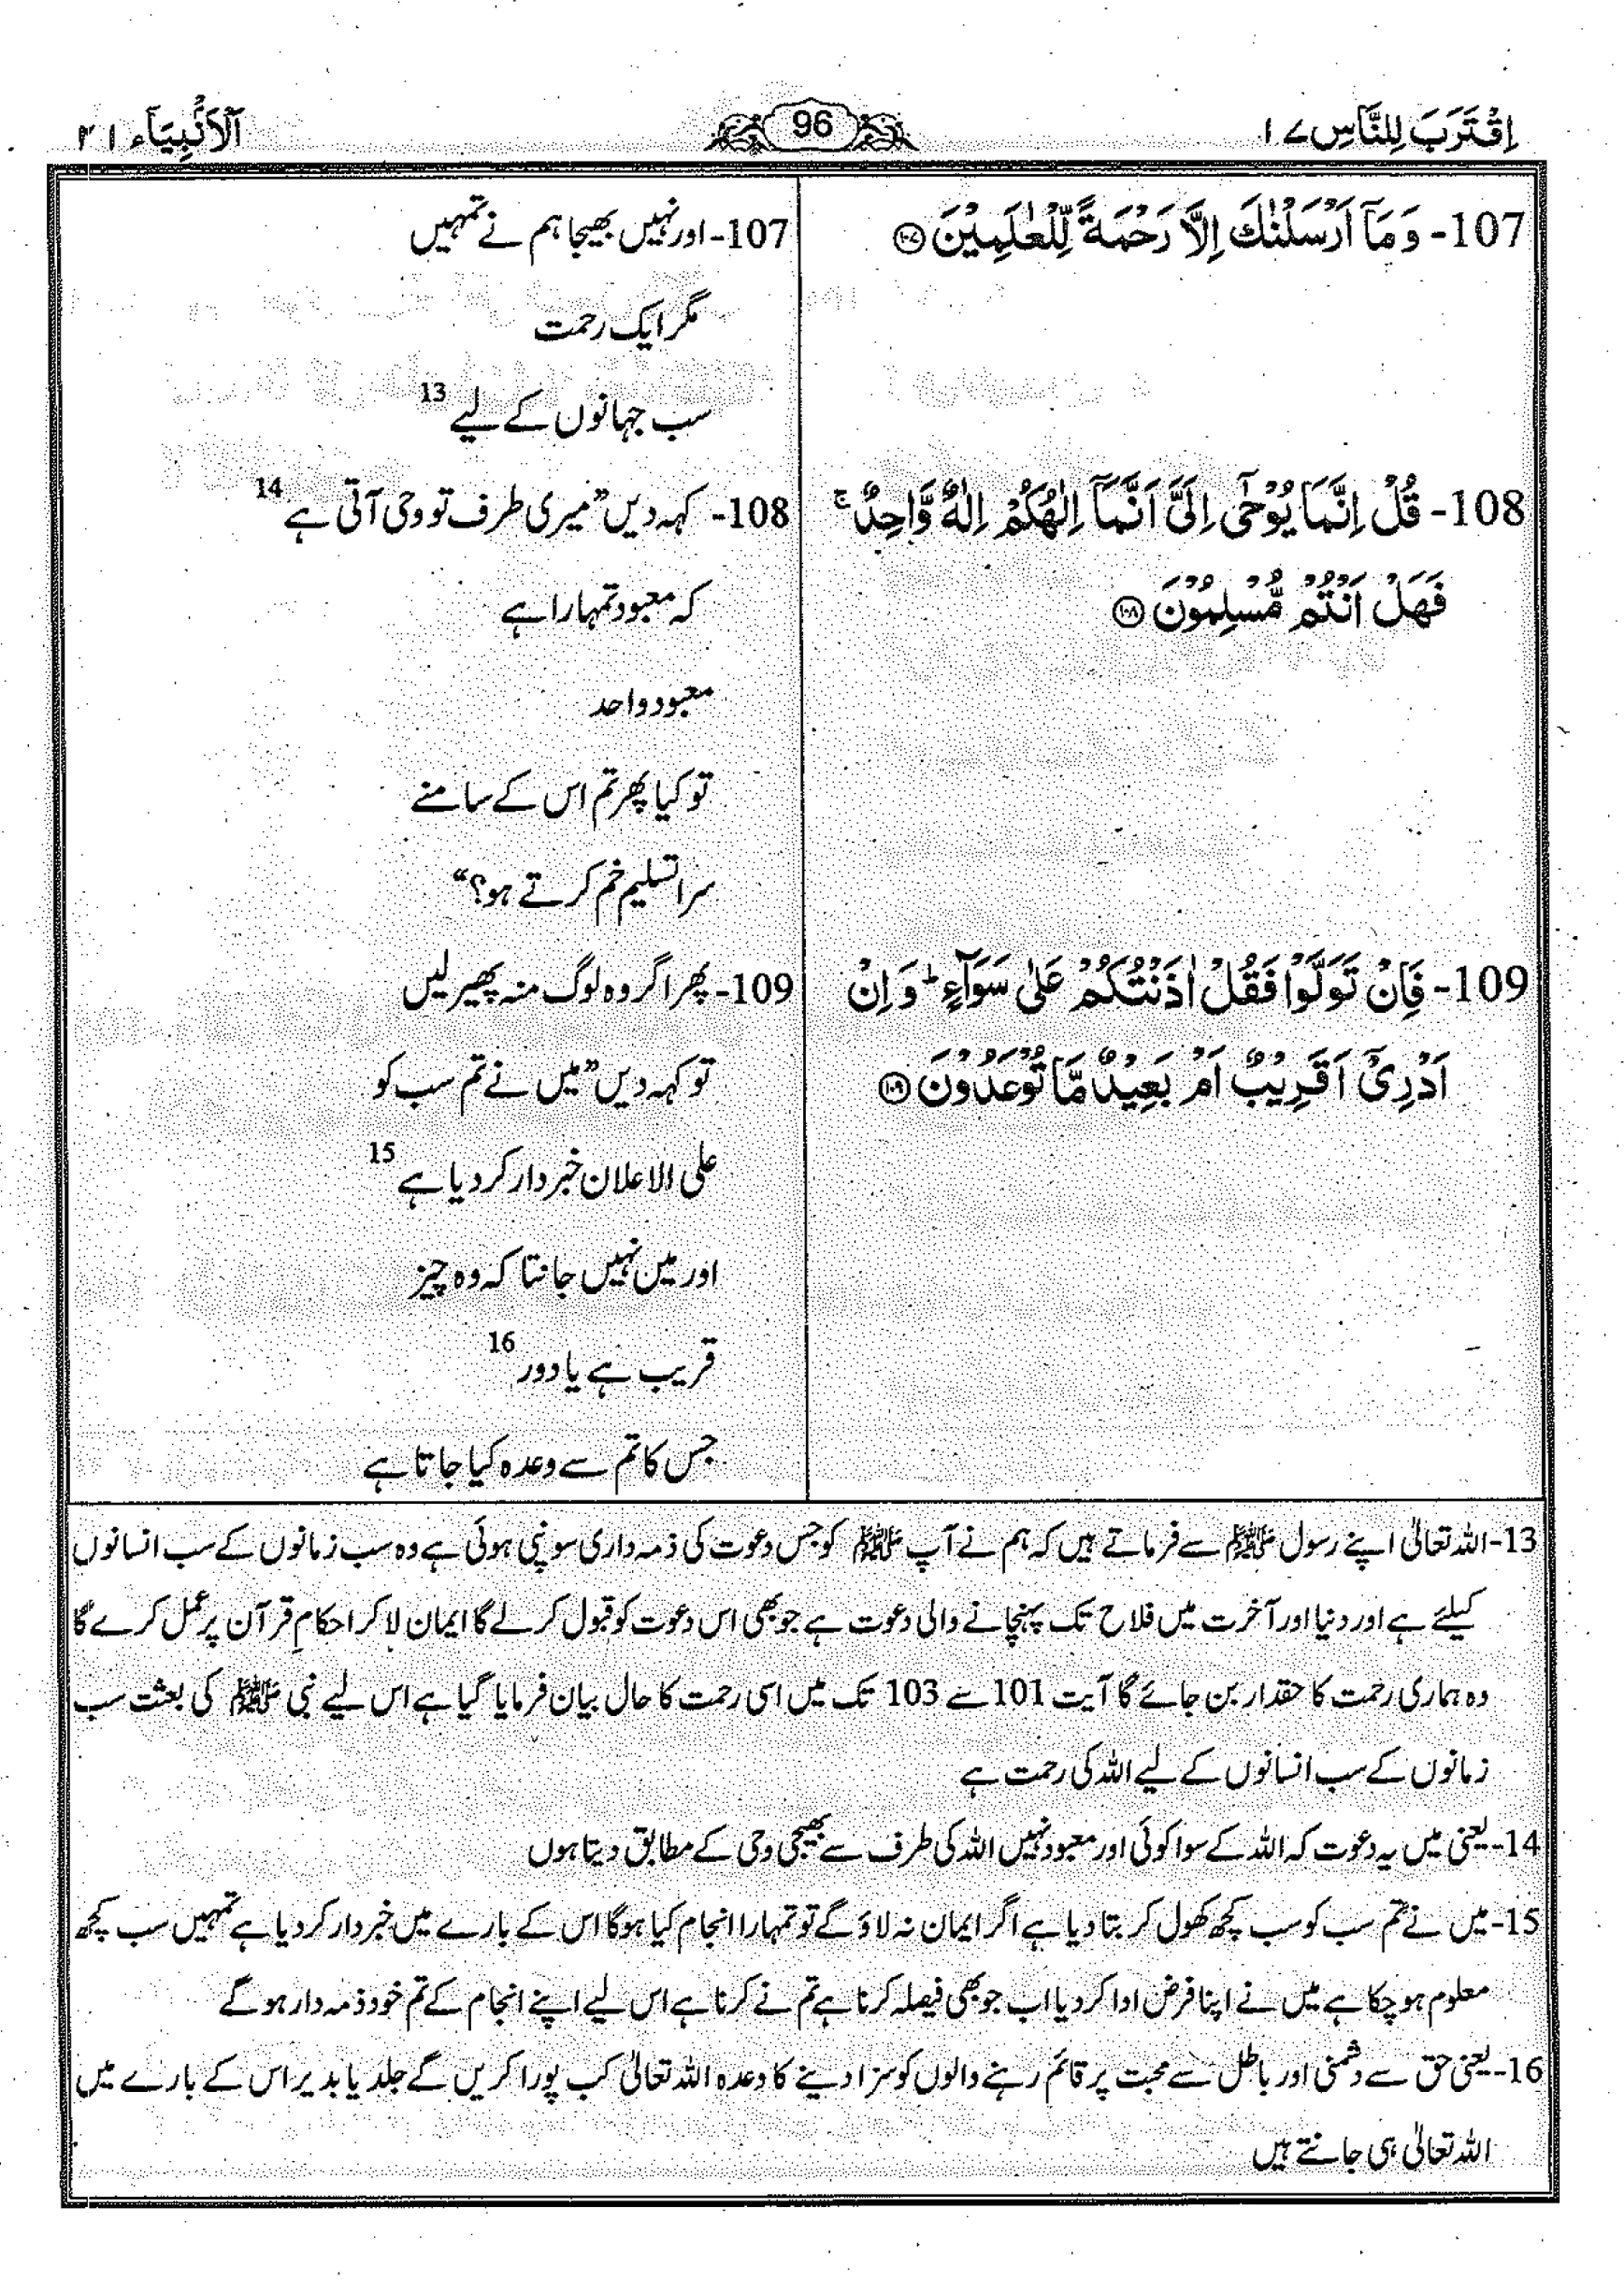 اِقْتَرَبَ لِلنَّاسِ ۱۷
96
اَلْاَنْۢبِيَآء ۲۱
107- وَ مَاۤ اَرْسَلْنٰكَ اِلَّا رَحْمَةً لِّلْعٰلَمِيْنَ ﴿۱۰۷﴾
108- قُلْ اِنَّمَا يُوْحٰۤى اِلَىَّ اَنَّمَاۤ اِلٰهُكُمْ اِلٰهٌ وَّاحِدٌ ۚ
فَهَلْ اَنْتُمْ مُّسْلِمُوْنَ ﴿۱۰۸﴾
109- فَاِنْ تَوَلَّوْا فَقُلْ اٰذَنْتُكُمْ عَلٰى سَوَآءٍ ؕ وَ اِنْ
اَدْرِىْۤ اَقَرِيْبٌ اَمْ بَعِيْدٌ مَّا تُوْعَدُوْنَ ﴿۱۰۹﴾
107- اور نہیں بھیجا ہم نے تمہیں
مگر ایک رحمت
سب جہانوں کے لیے 13
108- کہہ دیں ”میری طرف تو وحی آتی ہے 14
کہ معبود تمہارا ہے
معبود واحد
تو کیا پھر تم اس کے سامنے
سرا تسلیم خم کرتے ہو؟“
109- پھر اگر وہ لوگ منہ پھیر لیں
تو کہہ دیں ”میں نے تم سب کو
علی الاعلان خبردار کر دیا ہے 15
اور میں نہیں جانتا کہ وہ چیز
قریب ہے یا دور 16
جس کا تم سے وعدہ کیا جاتا ہے
13- اللہ تعالیٰ اپنے رسول ﷺ سے فرماتے ہیں کہ ہم نے آپ ﷺ کو جس دعوت کی ذمہ داری سونپی ہوئی ہے وہ سب زمانوں کے سب انسانوں
کیلئے ہے اور دنیا اور آخرت میں فلاح تک پہنچانے والی دعوت ہے جو بھی اس دعوت کو قبول کر لے گا ایمان لا کر احکامِ قرآن پر عمل کرے گا
وہ ہماری رحمت کا حقدار بن جائے گا آیت 101 سے 103 تک میں اسی رحمت کا حال بیان فرمایا گیا ہے اس لیے نبی ﷺ کی بعثت سب
زمانوں کے سب انسانوں کے لیے اللہ کی رحمت ہے
14- یعنی میں یہ دعوت کہ اللہ کے سوا کوئی اور معبود نہیں اللہ کی طرف سے بھیجی وحی کے مطابق دیتا ہوں
15- میں نے تم سب کو سب کچھ کھول کر بتا دیا ہے اگر ایمان نہ لاؤ گے تو تمہارا انجام کیا ہوگا اس کے بارے میں خبردار کر دیا ہے تمہیں سب کچھ
معلوم ہو چکا ہے میں نے اپنا فرض ادا کر دیا اب جو بھی فیصلہ کرنا ہے تم نے کرنا ہے اس لیے اپنے انجام کے تم خود ذمہ دار ہو گے
16- یعنی حق سے دشمنی اور باطل سے محبت پر قائم رہنے والوں کو سزا دینے کا وعدہ اللہ تعالیٰ کب پورا کریں گے جلد یا بدیر اس کے بارے میں
اللہ تعالیٰ ہی جانتے ہیں